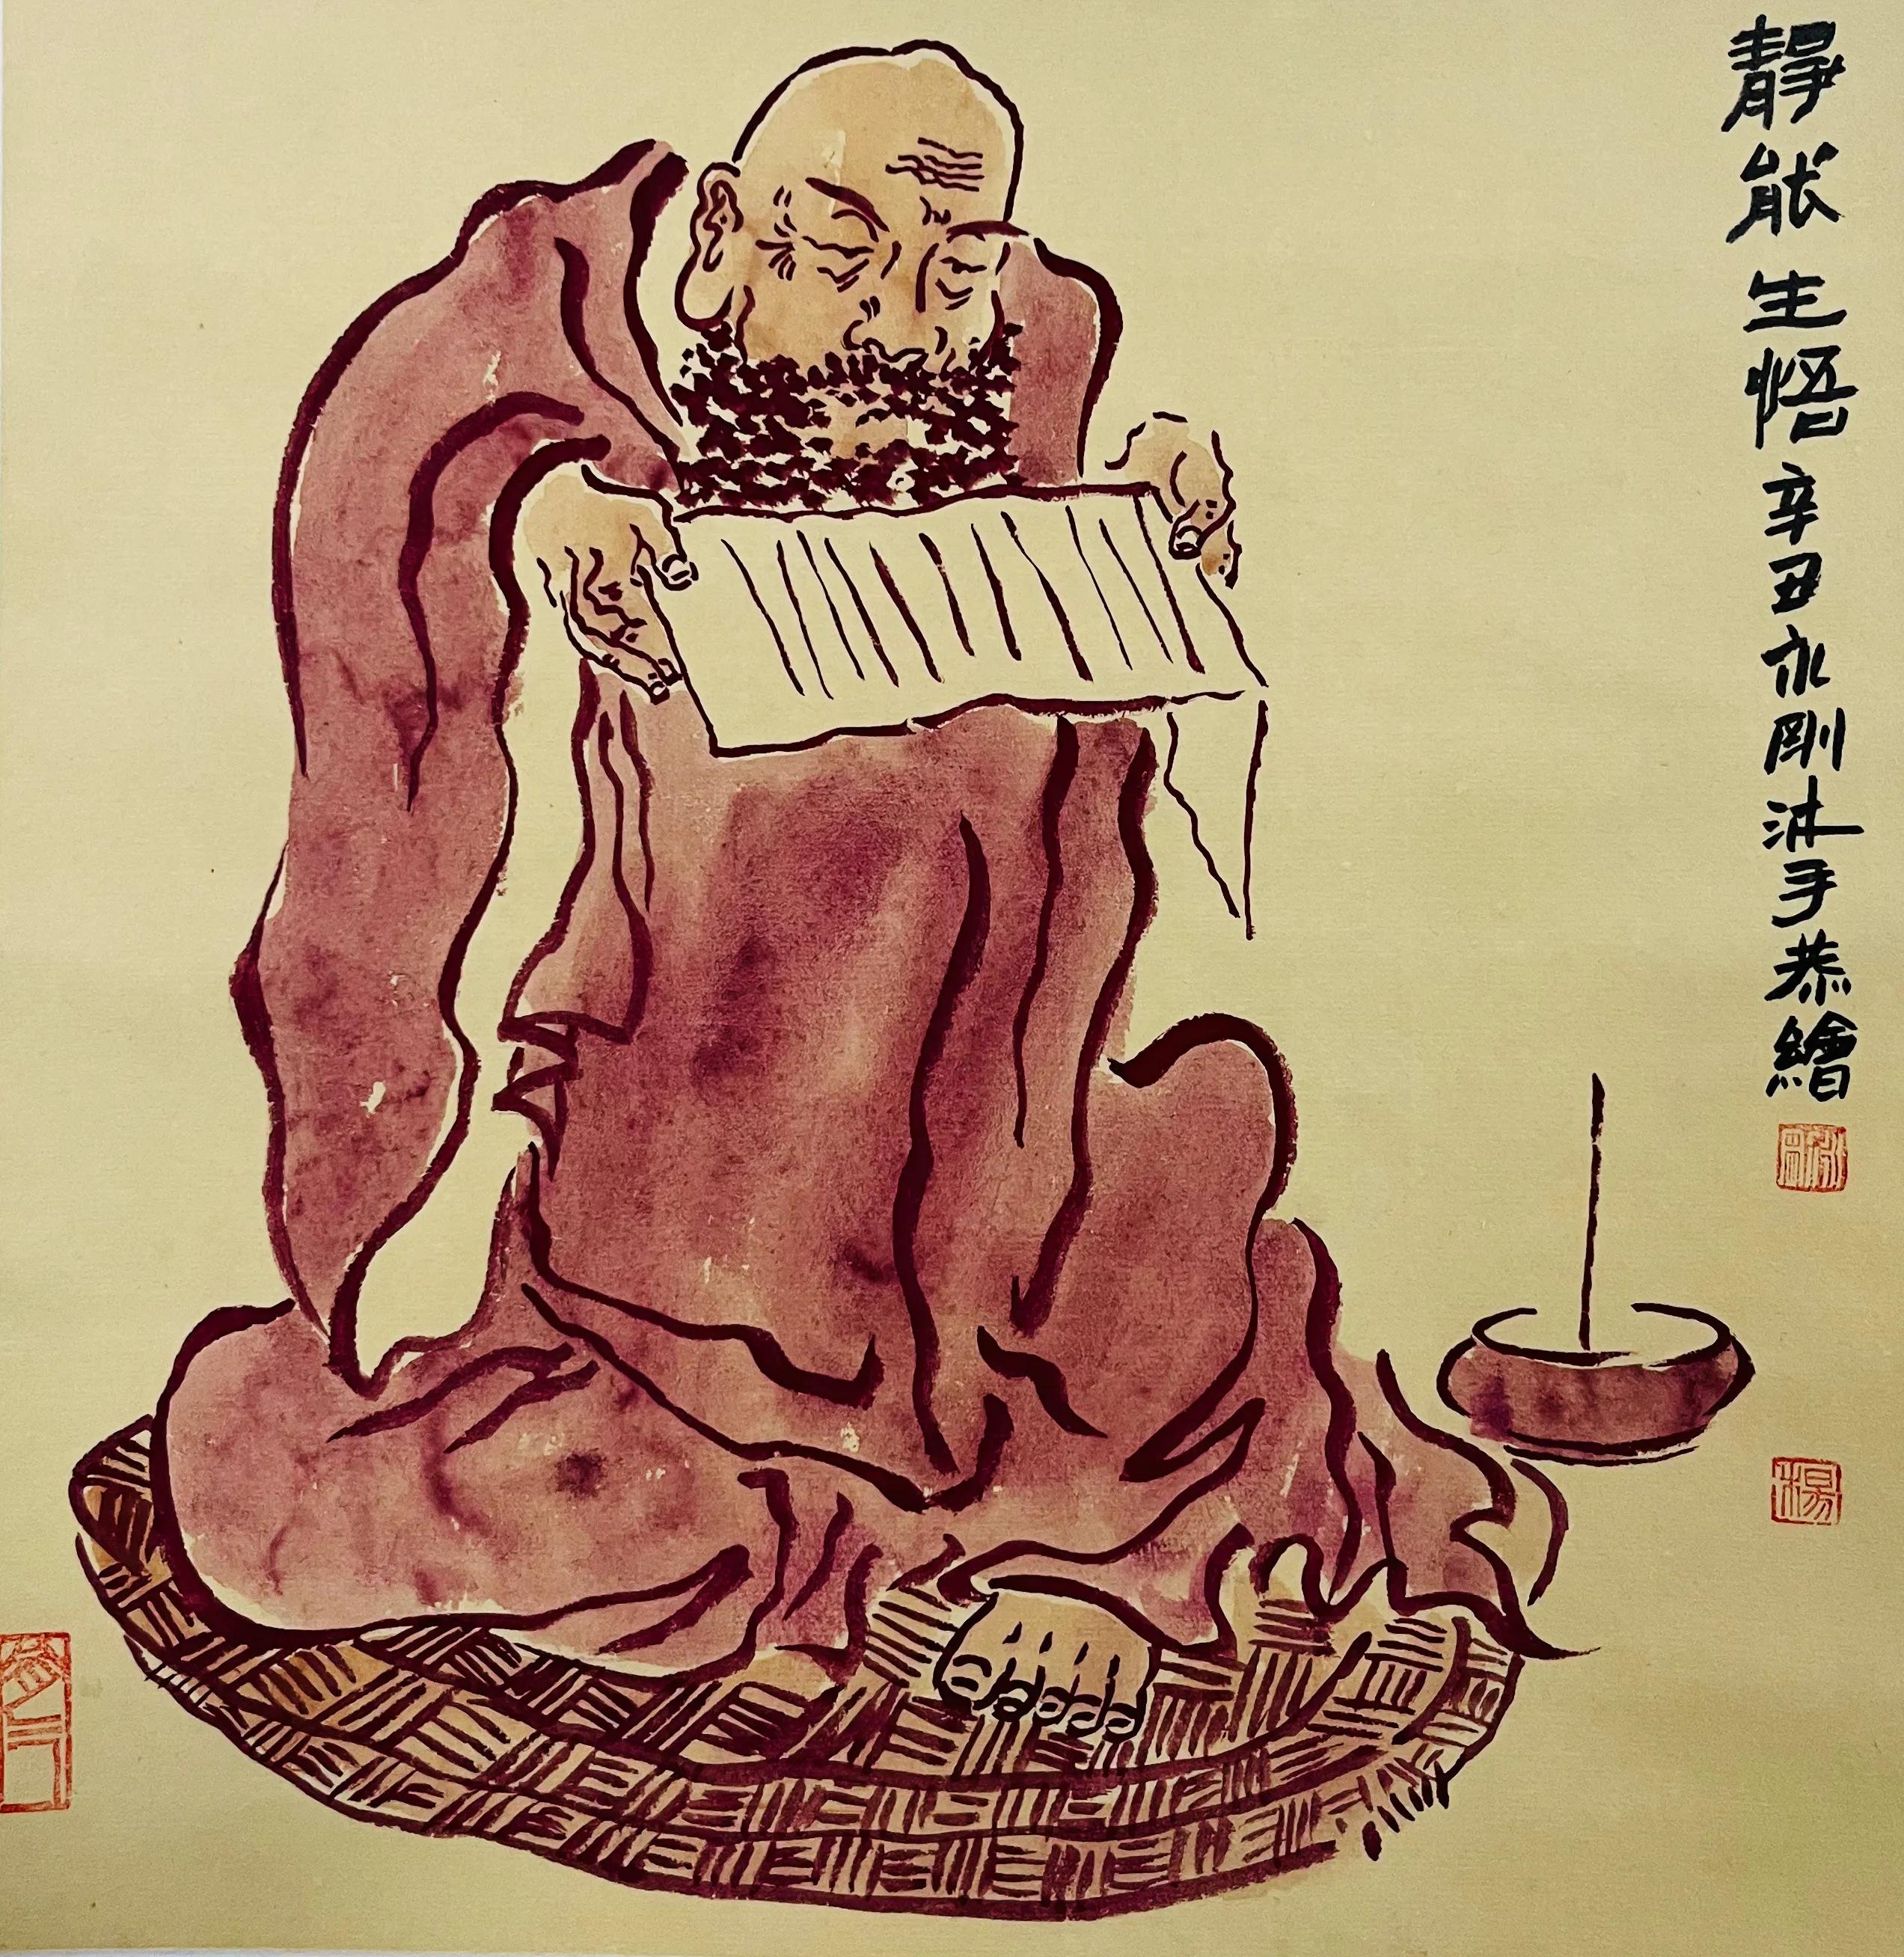 靜能生悟辛丑永剛沐手恭繪
楊